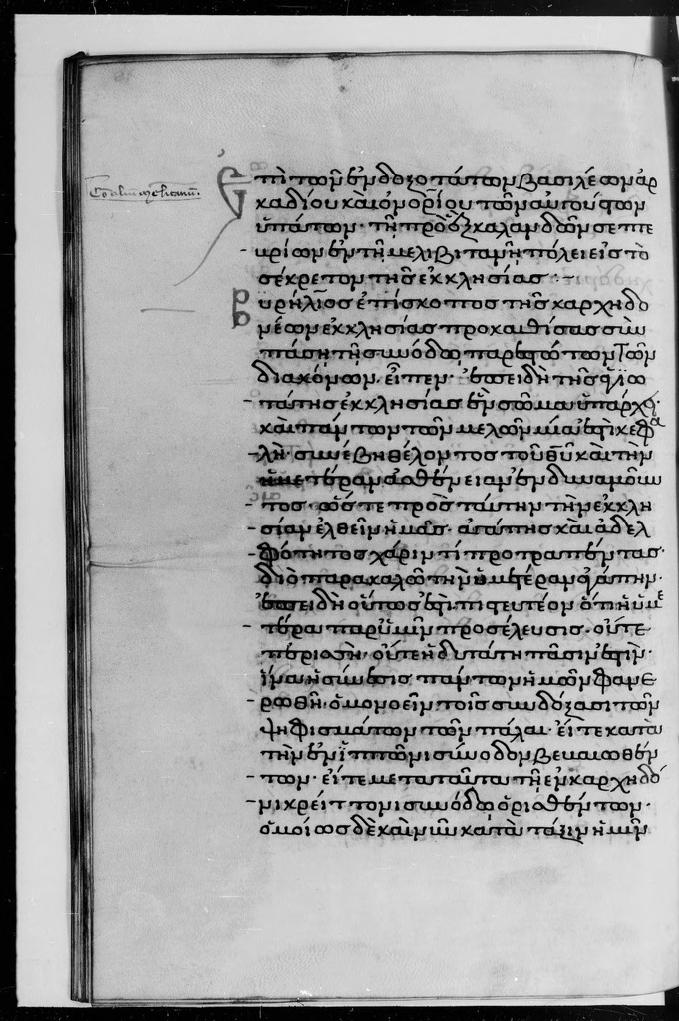 Concilium Milevitanum.
Ἐπὶ τῶν ἐνδοξοτάτων βασιλέων ἀρ
καδίου καὶ ὀνορίου τῶν αὐγούστων
ὑπάτων· τῇ πρὸ ϛ καλανδῶν σεπτε
μρίων ἐν τῇ μελιβιτανῇ πόλει εἰς τὸ
σέκρετον τῆς ἐκκλησίας :~
Αὐρήλιος ἐπίσκοπος τῆς καρχηδο
νέων ἐκκλησίας προκαθίσας σὺν
πάσῃ τῇ συνόδῳ παρεστώτων τῶν
διακόνων, εἶπεν· ἐπειδὴ τῆς ἁγιω
τάτης ἐκκλησίας ἓν σῶμα ὑπάρχει·
καὶ πάντων τῶν μελῶν μία ἐστὶ κεφα
λή· συνέβη θέλοντος τοῦ θυ καὶ τὴν
τέραν ἀσθένειαν ἐνδυναμοῦν
τος· ὥστε πρὸς ταύτην τὴν ἐκκλη
σίαν ἐλθεῖν ἡμᾶς· ἀγάπης καὶ ἀδελ
φότητος χάριν τί προτραπέντας·
διὸ παρακαλῶ τὴν ὑμετέραν ἀγάπην·
ἐπειδὴ οὕτως ἐστὶ πιστευτέον ὅτι ἡ ὑμε
τέρα παρ' ὑμῖν προσέλευσις· οὔτε
περισσὴ, οὔτε ἡδυτάτη πᾶσιν ἐστίν·
ἵνα ἡ σύνεσις πάντων ἡμῶν φανε
ρωθῇ, ὁμονοεῖν τοῖς συνδόξασι τῶν
ψηφισμάτων τῶν πάλαι· εἴτε κατὰ
τὴν ἐν ἱππῶνι σύνοδον βεβαιωθέν
των· εἴτε μετὰ ταῦτα τῇ ἐν καρχηδό
νι κρείττονι συνόδῳ ὁρισθέντων·
ὁμοίως δὲ καὶ νῦν κατὰ τάξιν ἡμῖν